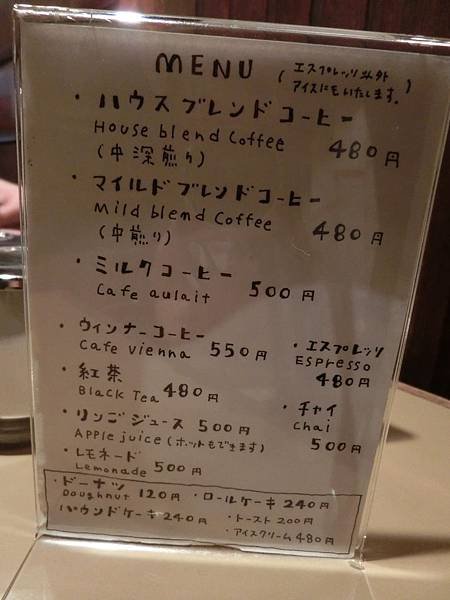 MENU (エスプレッソ以外
アイスにもいたします。)
・ハウスブレンドコーヒー
House blend Coffee 480円
(中深煎り)
・マイルドブレンドコーヒー
Mild blend Coffee 480円
(中煎り)
・ミルクコーヒー
Cafe aulait 500円
・ウィンナーコーヒー
Cafe vienna 550円
・エスプレッソ
ESPresso
480円
・紅茶
Black Tea 480円
・チャイ
Chai
500円
・リンゴジュース 500円
APPle juice (ホットもできます)
・レモネード
Lemonade 500円
・ドーナツ
Doughnut 120円 ・ロールケーキ 240円
パウンドケーキ 240円 ・トースト 200円
・アイスクリーム 480円